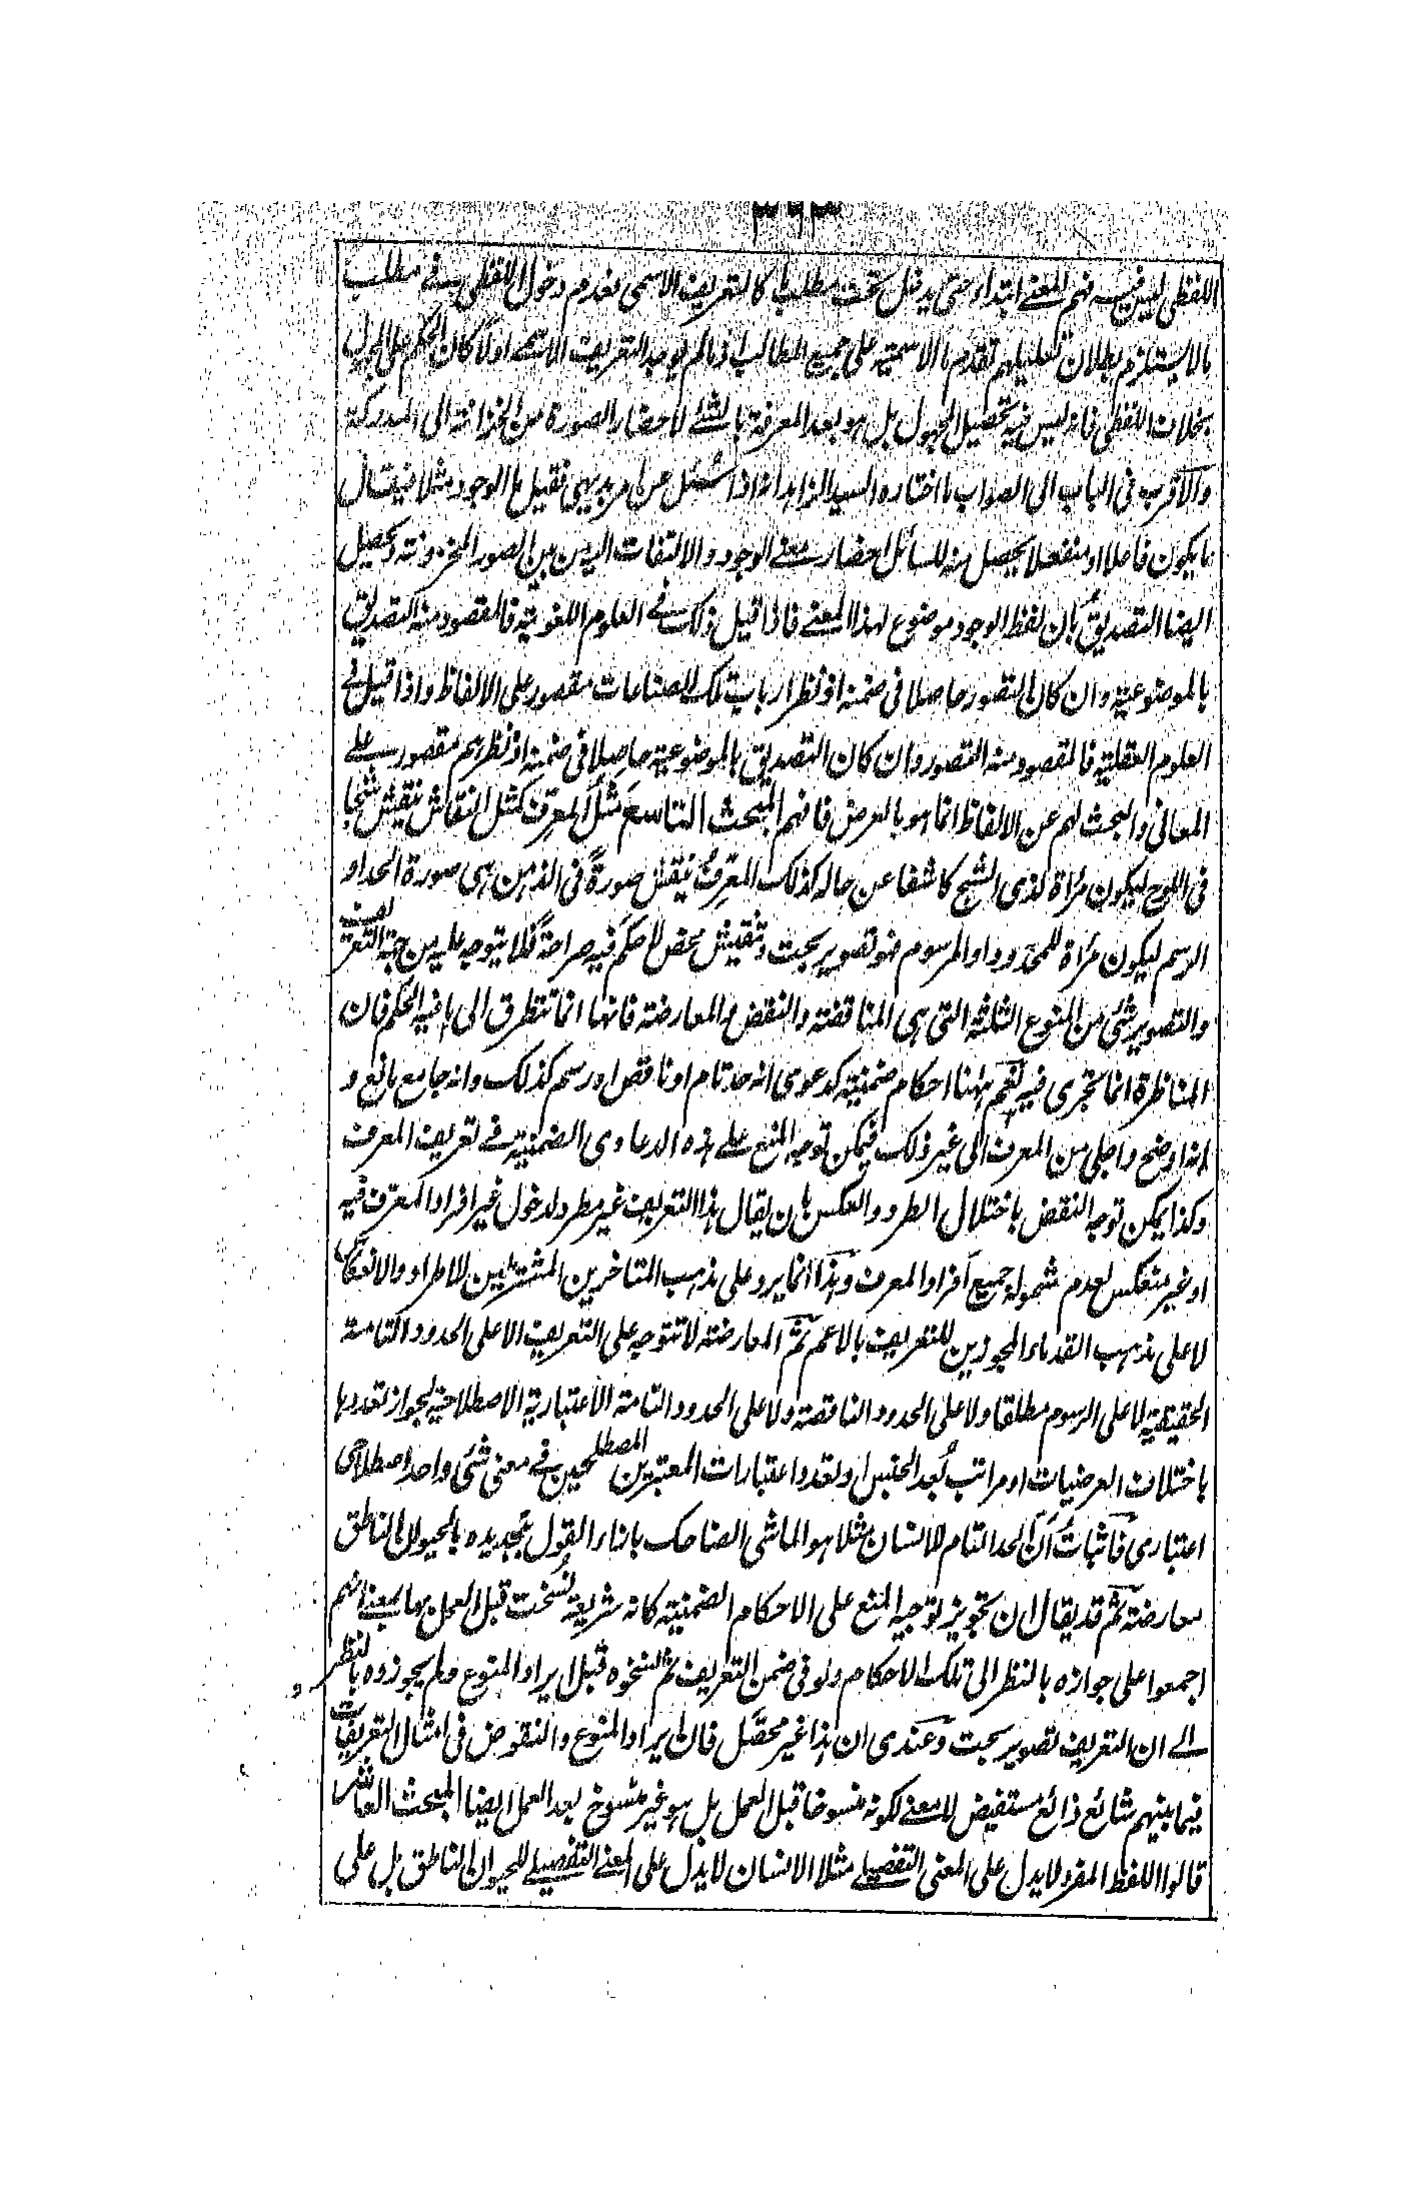 اللفظی لیس فیه فهم المعنے ابتداء حتی یدخل تحت مطلب ما کالتعریف الاسمی فعدم دخول اللفظی فے مطلب
ما لا یستلزم بطلان تعلیلهم تقدم ما الاسمیة علی جمیع المطالب اذ ما لم یوجد التعریف الاسمے اولا کان الحکم علی المجهول
بخلاف اللفظی فانه لیس فیه تحصیل المجهول بل هو بعد المعرفة بالشئے لاحضار الصورة من الخزانة الی المدرکة
والاقرب فی الباب الی الصواب ما اختاره السید الزاهد انه اذا سُئل عن امر بدیهی فقیل ما الوجود مثلا فیقال
ما یکون فاعلا او منفعلا یحصل منه للسائل احضار معنے الوجود والالتفات الیه من بین الصور المخزونة ویحصل
ایضا التصدیق بان لفظ الوجود موضوع لهذا المعنے فاذا قیل ذلک فے العلوم اللغویة فالمقصود منه التصدیق
بالموضوعیة وان کان التصور حاصلا فی ضمنه اذ نظر ارباب تلک الصناعات مقصور علی الالفاظ واذا قیل فے
العلوم العقلیة فالمقصود منه التصور وان کان التصدیق بالموضوعیة حاصلا فی ضمنه اذ نظرهم مقصور علے
المعانی والبحث لهم عن الالفاظ انما هو بالعرض فافهم المبحث التاسع مثل المعرِّف کمثل النقاش ینقش شبحا
فی اللوح لیکون مرآة لذی الشبح کاشفا عن حاله کذلک المعرِّف ینقش صورةً فی الذهن هی صورة الحد او
الرسم لیکون مرآة للمحدود او المرسوم فهو تصویر بحت ونقش محض لا حکم فیه صراحةً فلا یتوجه علیه من جهة التعریف
والتصویر شئ من المنوع الثلثة التی هی المناقضة والنقض والمعارضة فانها انما تتطرق الی ما فیه الحکم فان
المناظرة انما تجری فیه نعم ههنا احکام ضمنیة کدعوی انه حد تام او ناقص او رسم کذلک وانه جامع مانع و
انه اوضح واجلی من المعرف الی غیر ذلک فیمکن توجه المنع علے هذه الدعاوی الضمنیة فے تعریف المعرف
وکذا یمکن توجه النقض باختلال الطرد والعکس بان یقال هذا التعریف غیر مطرد لدخول غیر افراد المعرف فیه
او غیر منعکس لعدم شموله جمیع افراد المعرف وهذا انما یرد علی مذهب المتاخرین المشترطین للاطراد والانعکاس
لا علی مذهب القدماء المجوزین للتعریف بالاعم ثم المعارضة لا تتوجه علی التعریف الا علی الحدود التامة
الحقیقیة لا علی الرسوم مطلقا ولا علی الحدود الناقصة ولا علی الحدود التامة الاعتباریة الاصطلاحیة لجواز تعددها
باختلاف العرضیات او مراتب بُعد الجنس او تعدد اعتبارات المعتبرین المصطلحین فے معنی شئ واحد اصطلاحی
اعتباری فاثبات ان الحد التام للانسان مثلا هو الماشی الضاحک بازاء القول بتحدیده بالحیوان الناطق
معارضة ثم قد یقال ان تجویز توجیه المنع علی الاحکام الضمنیة کانه شریعة نُسخت قبل العمل بها بمعنے انهم
اجمعوا علی جوازه بالنظر الی تلک الاحکام ولو فی ضمن التعریف ثم نسخوه قبل ایراد المنوع ولم یجوزوه بالنظر
الے ان التعریف تصویر بحت وعندی ان هذا غیر محصَّل فان ایراد المنوع والنقوض فی امثال التعریفات
فیما بینهم شائع ذائع مستفیض لا معنے لکونه منسوخا قبل العمل بل هو غیر منسوخ بعد العمل ایضا المبحث العاشر
قالوا اللفظ المفرد لا یدل علی المعنی التفصیلے مثلا الانسان لا یدل علی المعنے التفصیلے للحیوان الناطق بل علی